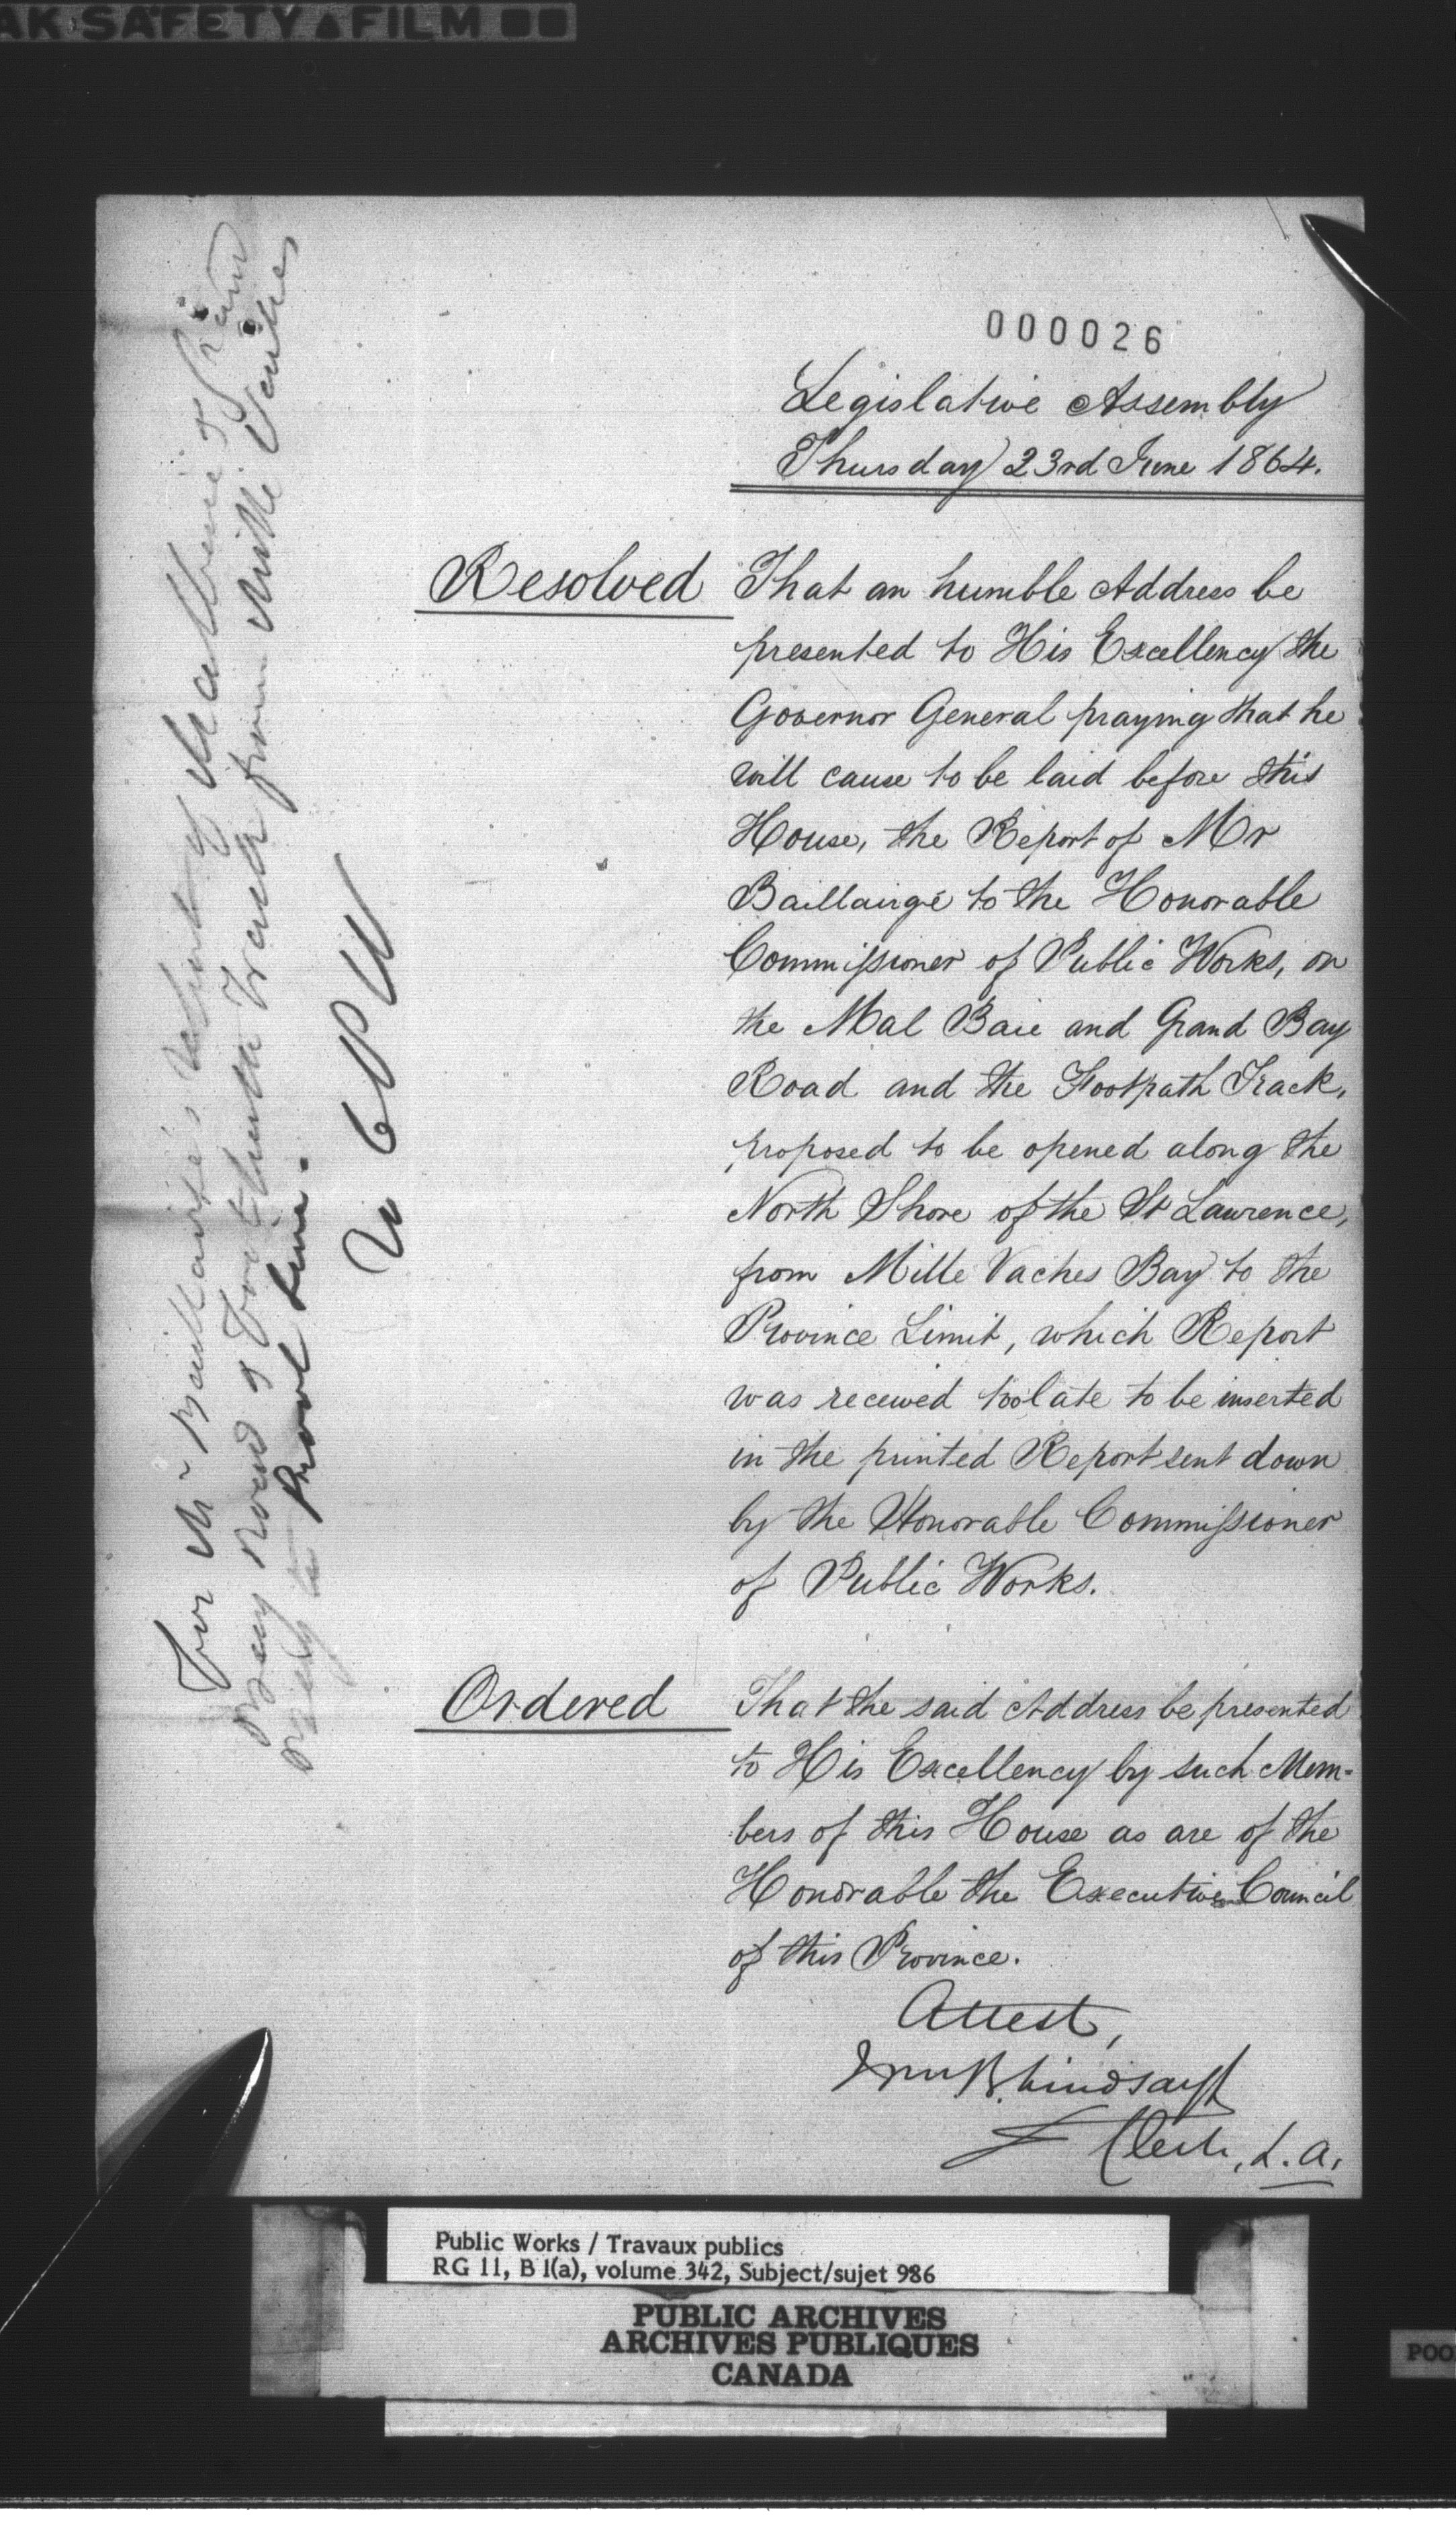 AK SAFETY ▲ FILM
000026
Legislative Assembly
Thursday 23rd June 1864.
Resolved That an humble Address be
presented to His Excellency the
Governor General praying that he
will cause to be laid before this
House, the Report of Mr
Baillairgé to the Honorable
Commissioner of Public Works, on
the Mal Baie and Grand Bay
Road and the Footpath Track,
proposed to be opened along the
North Shore of the St Lawrence,
from Mille Vaches Bay to the
Province Limit, which Report
was received too late to be inserted
in the printed Report sent down
by the Honorable Commissioner
of Public Works.
Ordered That the said Address be presented
to His Excellency by such Mem-
bers of this House as are of the
Honorable the Executive Council
of this Province.
Attest,
Wm B. Lindsay
Clerk, L. A.
For Mr Baillairgé's of &
Bay Road & Track from Mille Vaches
Bay to Provl Line.
Public Works / Travaux publics
RG 11, B 1(a), volume 342, Subject/sujet 986
PUBLIC ARCHIVES
ARCHIVES PUBLIQUES
CANADA
POO